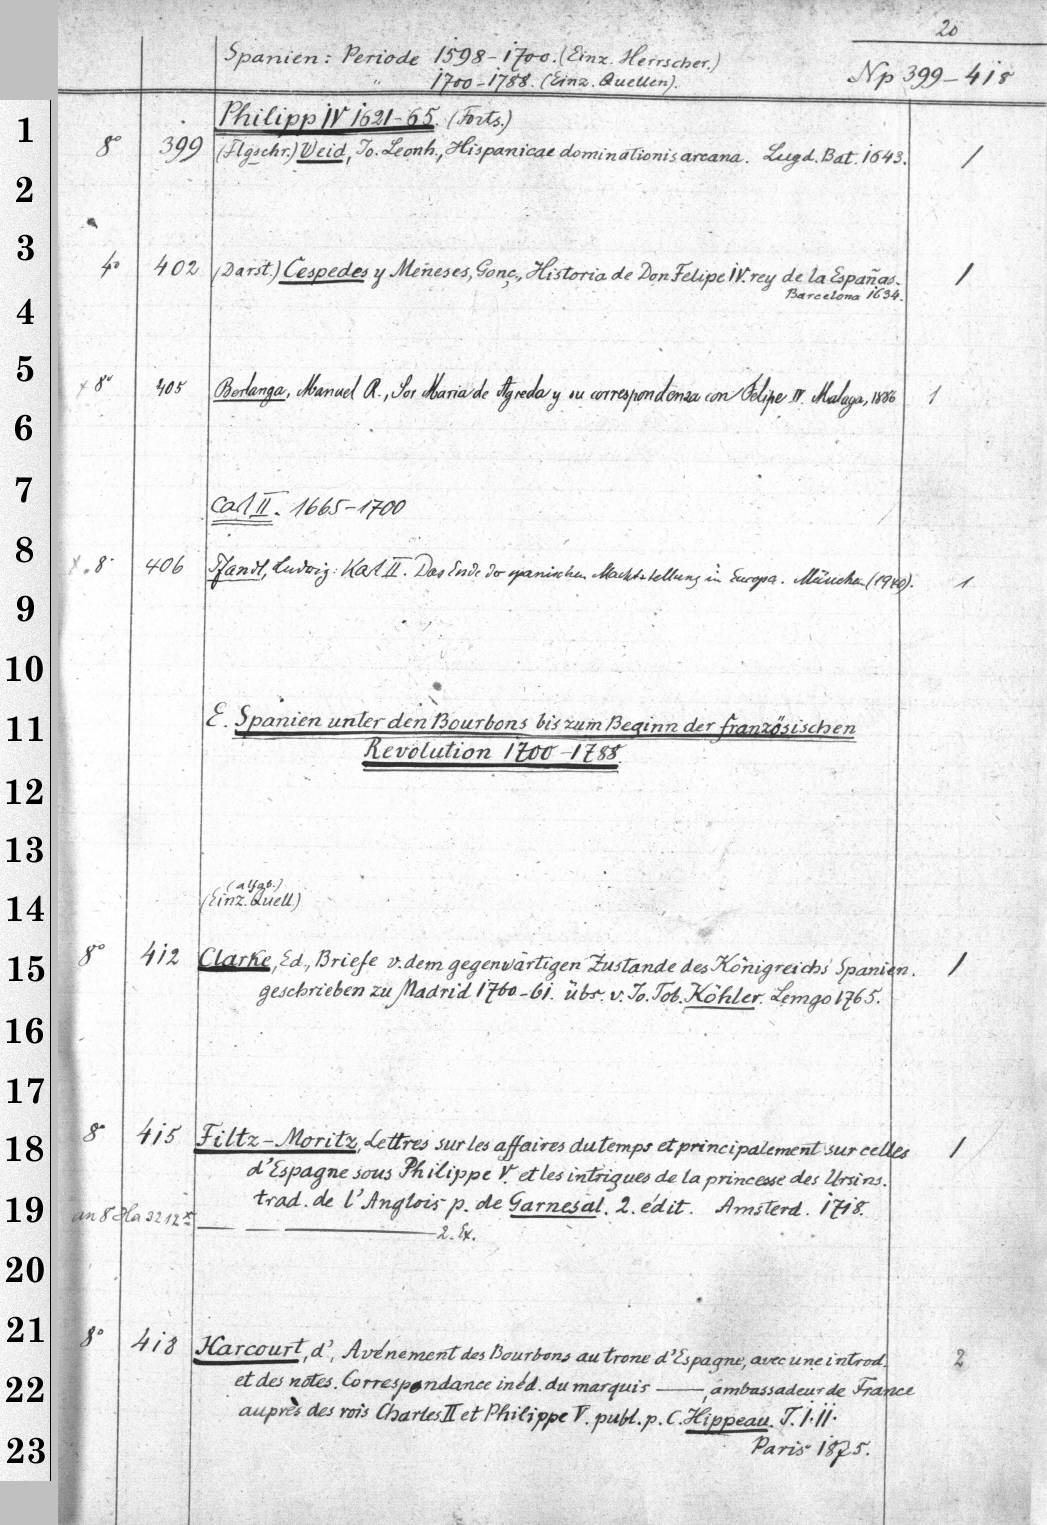 20
Spanien: Periode 1598-1700. (Einz. Herrscher.)
" 1700-1788. (Einz. Quellen). Np 399-418
1
Philipp IV 1621-65. (Forts.)
8° 399 (Flgschr.) Weid, Jo. Leonh., Hispanicae dominationis arcana. Lugd. Bat. 1643. 1
2
3
4° 402 (Darst.) Cespedes y Meneses, Gonç., Historia de Don Felipe IV. rey de la Españas.
Barcelona 1634. 1
4
5
+ 8° 405 Berlanga, Manuel R., Sor Maria de Agreda y su correspondenza con Felipe IV. Malaga, 1886 1
6
7
Carl II. 1665-1700
8
8° 406 Pfandl, Ludwig: Karl II. Das Ende der spanischen Machtstellung in Europa. München (1940). 1
9
10
11
E. Spanien unter den Bourbons bis zum Beginn der französischen
Revolution 1700-1788.
12
13
14
(allgt.)
(Einz. Quell)
15
8° 412 Clarke, Ed., Briefe v. dem gegenwärtigen Zustande des Königreichs Spanien. 1
geschrieben zu Madrid 1760-61. übs. v. Jo. Tob. Köhler. Lemgo 1765.
16
17
18
8° 415 Filtz-Moritz, Lettres sur les affaires du temps et principalement sur celles 1
d'Espagne sous Philippe V. et les intrigues de la princesse des Ursins.
19
trad. de l'Anglois p. de Garnesal. 2. édit. Amsterd. 1718.
an 8° Ha 3212 — — — 2. Ex.
20
21
8° 418 Harcourt, d', Avénement des Bourbons au trone d'Espagne, avec une introd. 2
22
et des notes. Correspondance inéd. du marquis —, ambassadeur de France
auprès des rois Charles II et Philippe V. publ. p. C. Hippeau. T. I. II.
23
Paris 1875.